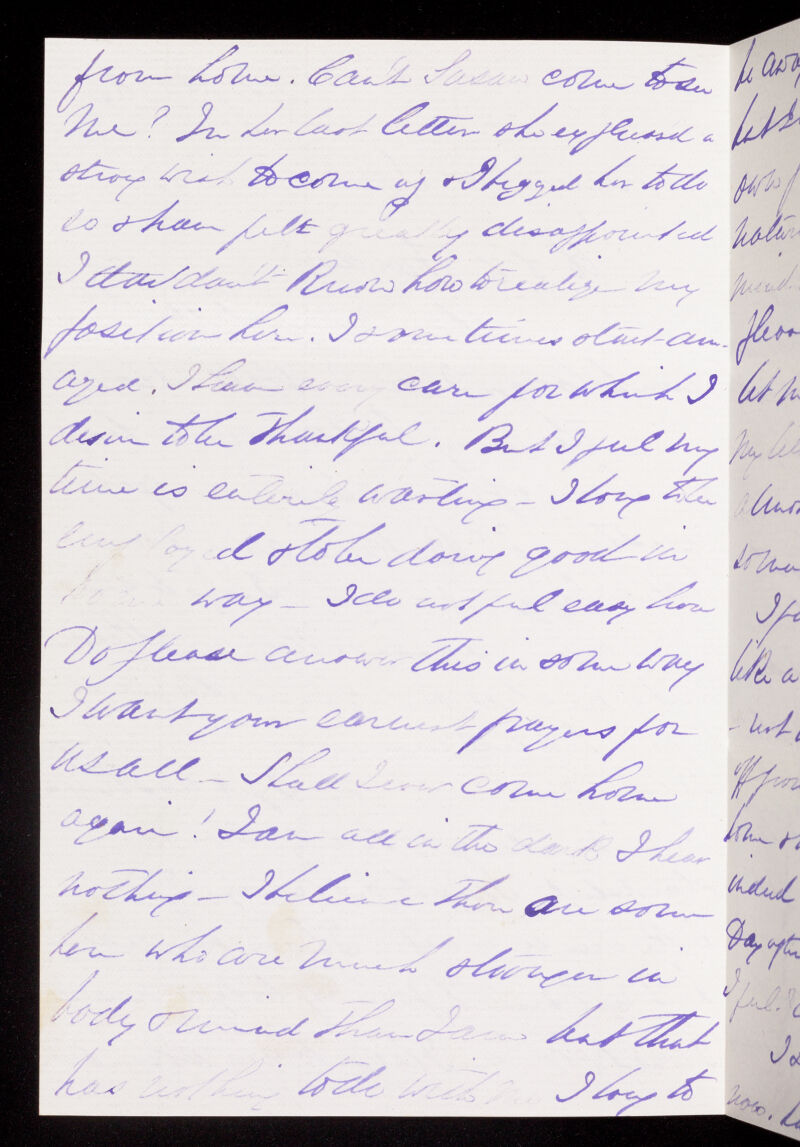 from home. Can't Susan come to see
me? In her last letter she expressed a
strong wish to come up & I begged her to do
so & have felt greatly disappointed
I don't know how to realize my
position here. I sometimes start am-
azed. I have every care for which I
desire to be thankful. But I feel my
time is entirely wasting - I long to be
employed & to be doing good in
some way - I do not feel easy here
Do please answer this in some way
I want your earnest prayers for
us all - Shall I ever come home
again! I am all in the dark I hear
nothing - I believe there are some
here who are much stronger in
body & mind than I am but that
has nothing to do with me I long to
he away
but I
own
natur
mind

let m
my
almos
some
I fe
like a
- not

home &
indeed
Day after
I feel.
I
now.